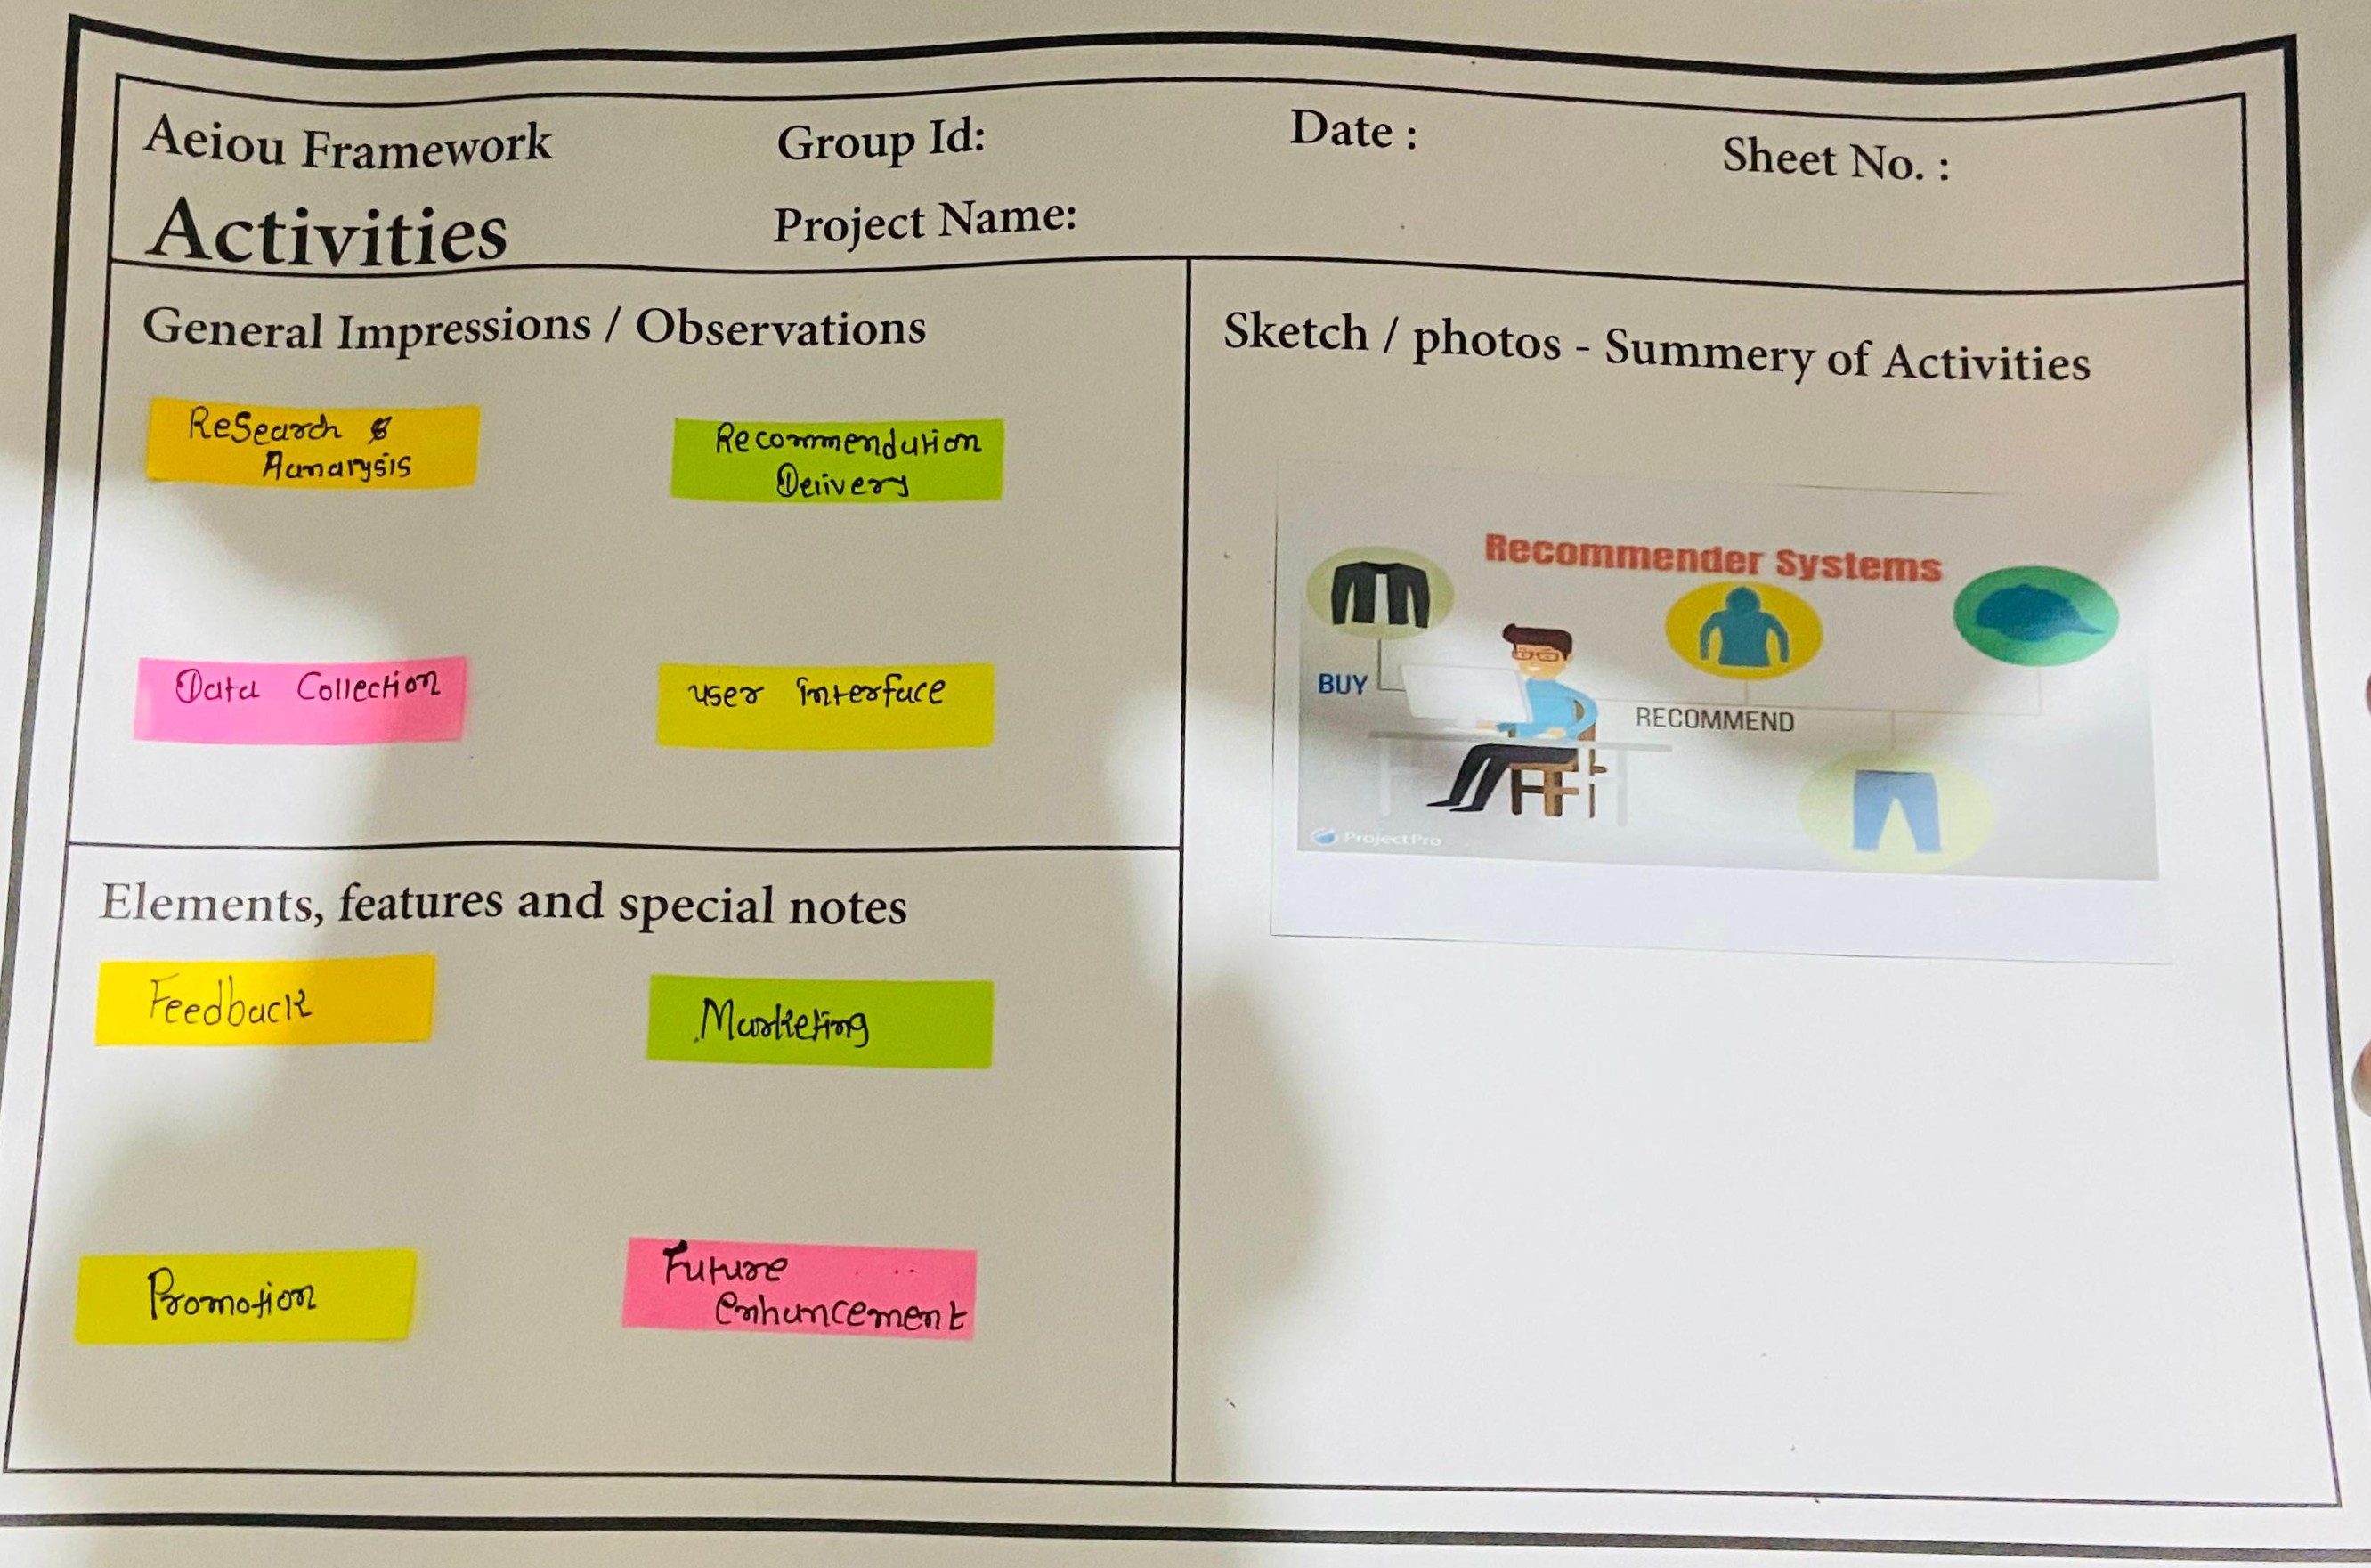 Aeiou Framework
Activities
Group Id:
Project Name:
Date :
Sheet No. :
General Impressions / Observations
ReSearch &
Aanalysis
Recommendation
Delivery
Data Collection
user interface
Elements, features and special notes
Feedback
Marketing
Promotion
Future
enhancement
Sketch / photos - Summery of Activities
Recommender Systems
BUY
RECOMMEND
ProjectPro